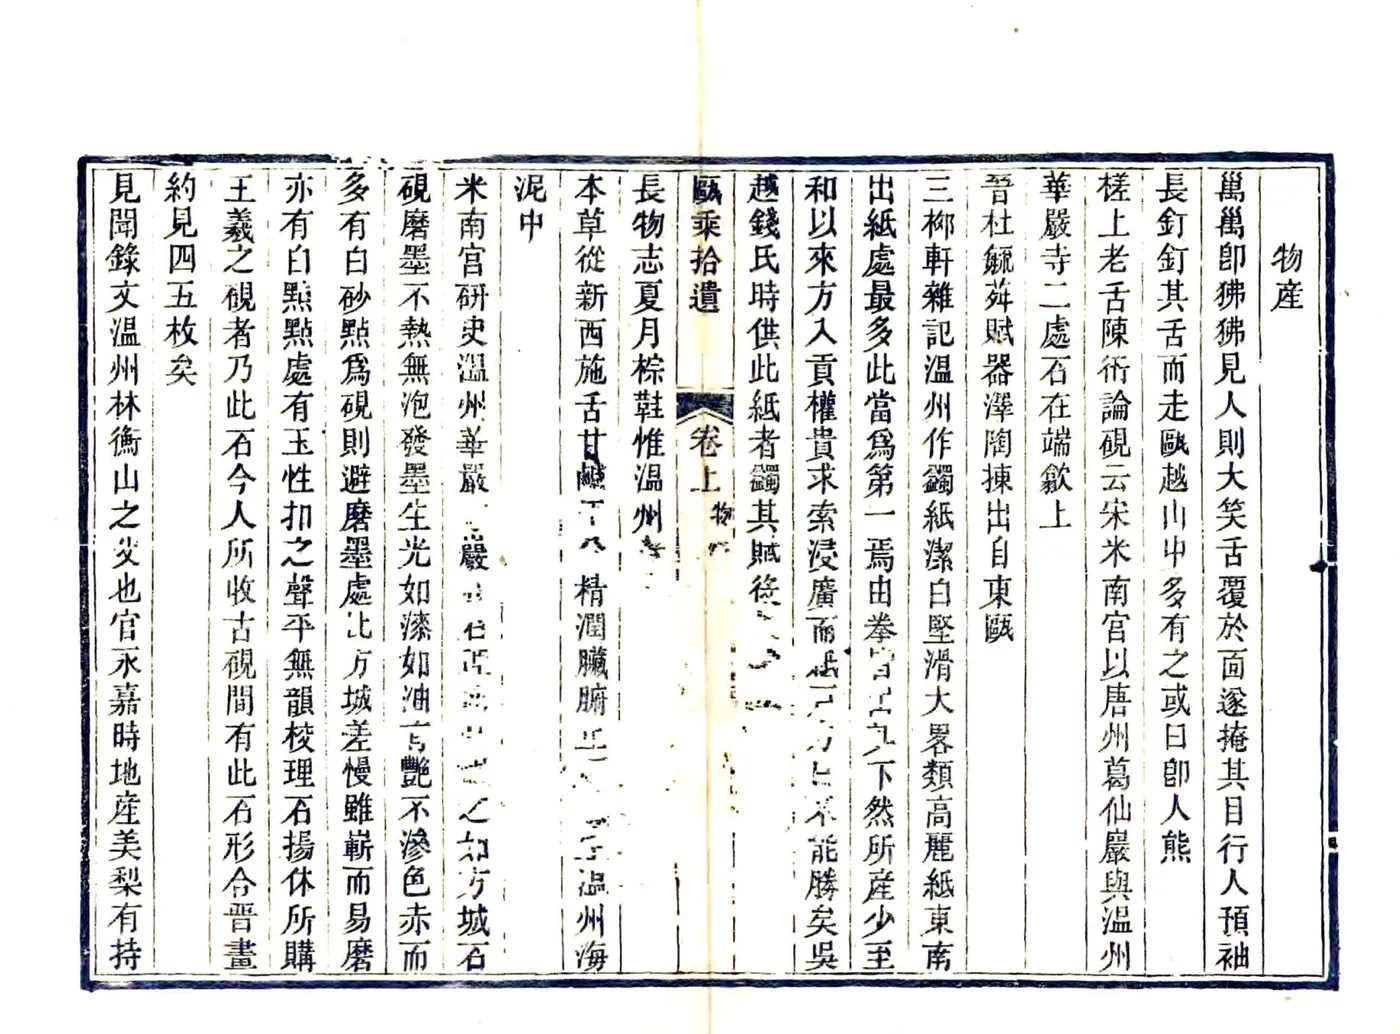 物產
巢巢卽狒狒見人則大笑舌覆於面遂掩其目行人預袖
長釘釘其舌而走甌越山中多有之或曰卽人熊
槎上老舌陳衎論硯云宋米南宮以唐州葛仙巖與溫州
華嚴寺二處石在端歙上
晉杜毓荈賦器澤陶揀出自東甌
三柳軒雜記溫州作蠲紙潔白堅滑大畧類高麗紙東南
出紙處最多此當爲第一焉由拳皆出其下然所產少至
和以來方入貢權貴求索浸廣而紙戶力能勝矣吳
越錢氏時供此紙者蠲其賦役
甌乘拾遺
卷上
物
長物志夏月棕鞋惟溫州
本草從新西施舌甘鹹平 精潤臟腑 溫州海
泥中
米南宮研史溫州華嚴 嚴 石 之如方城石
硯磨墨不熱無泡發墨生光如漆如油有艷不滲色赤而
多有白砂點爲硯則避磨墨處比方城差慢雖嶄而易磨
亦有白點點處有玉性扣之聲平無韻棱理石揚休所購
王羲之硯者乃此石今人所收古硯間有此石形合晉畫
約見四五枚矣
見聞錄文溫州林衡山之父也官永嘉時地產美梨有持